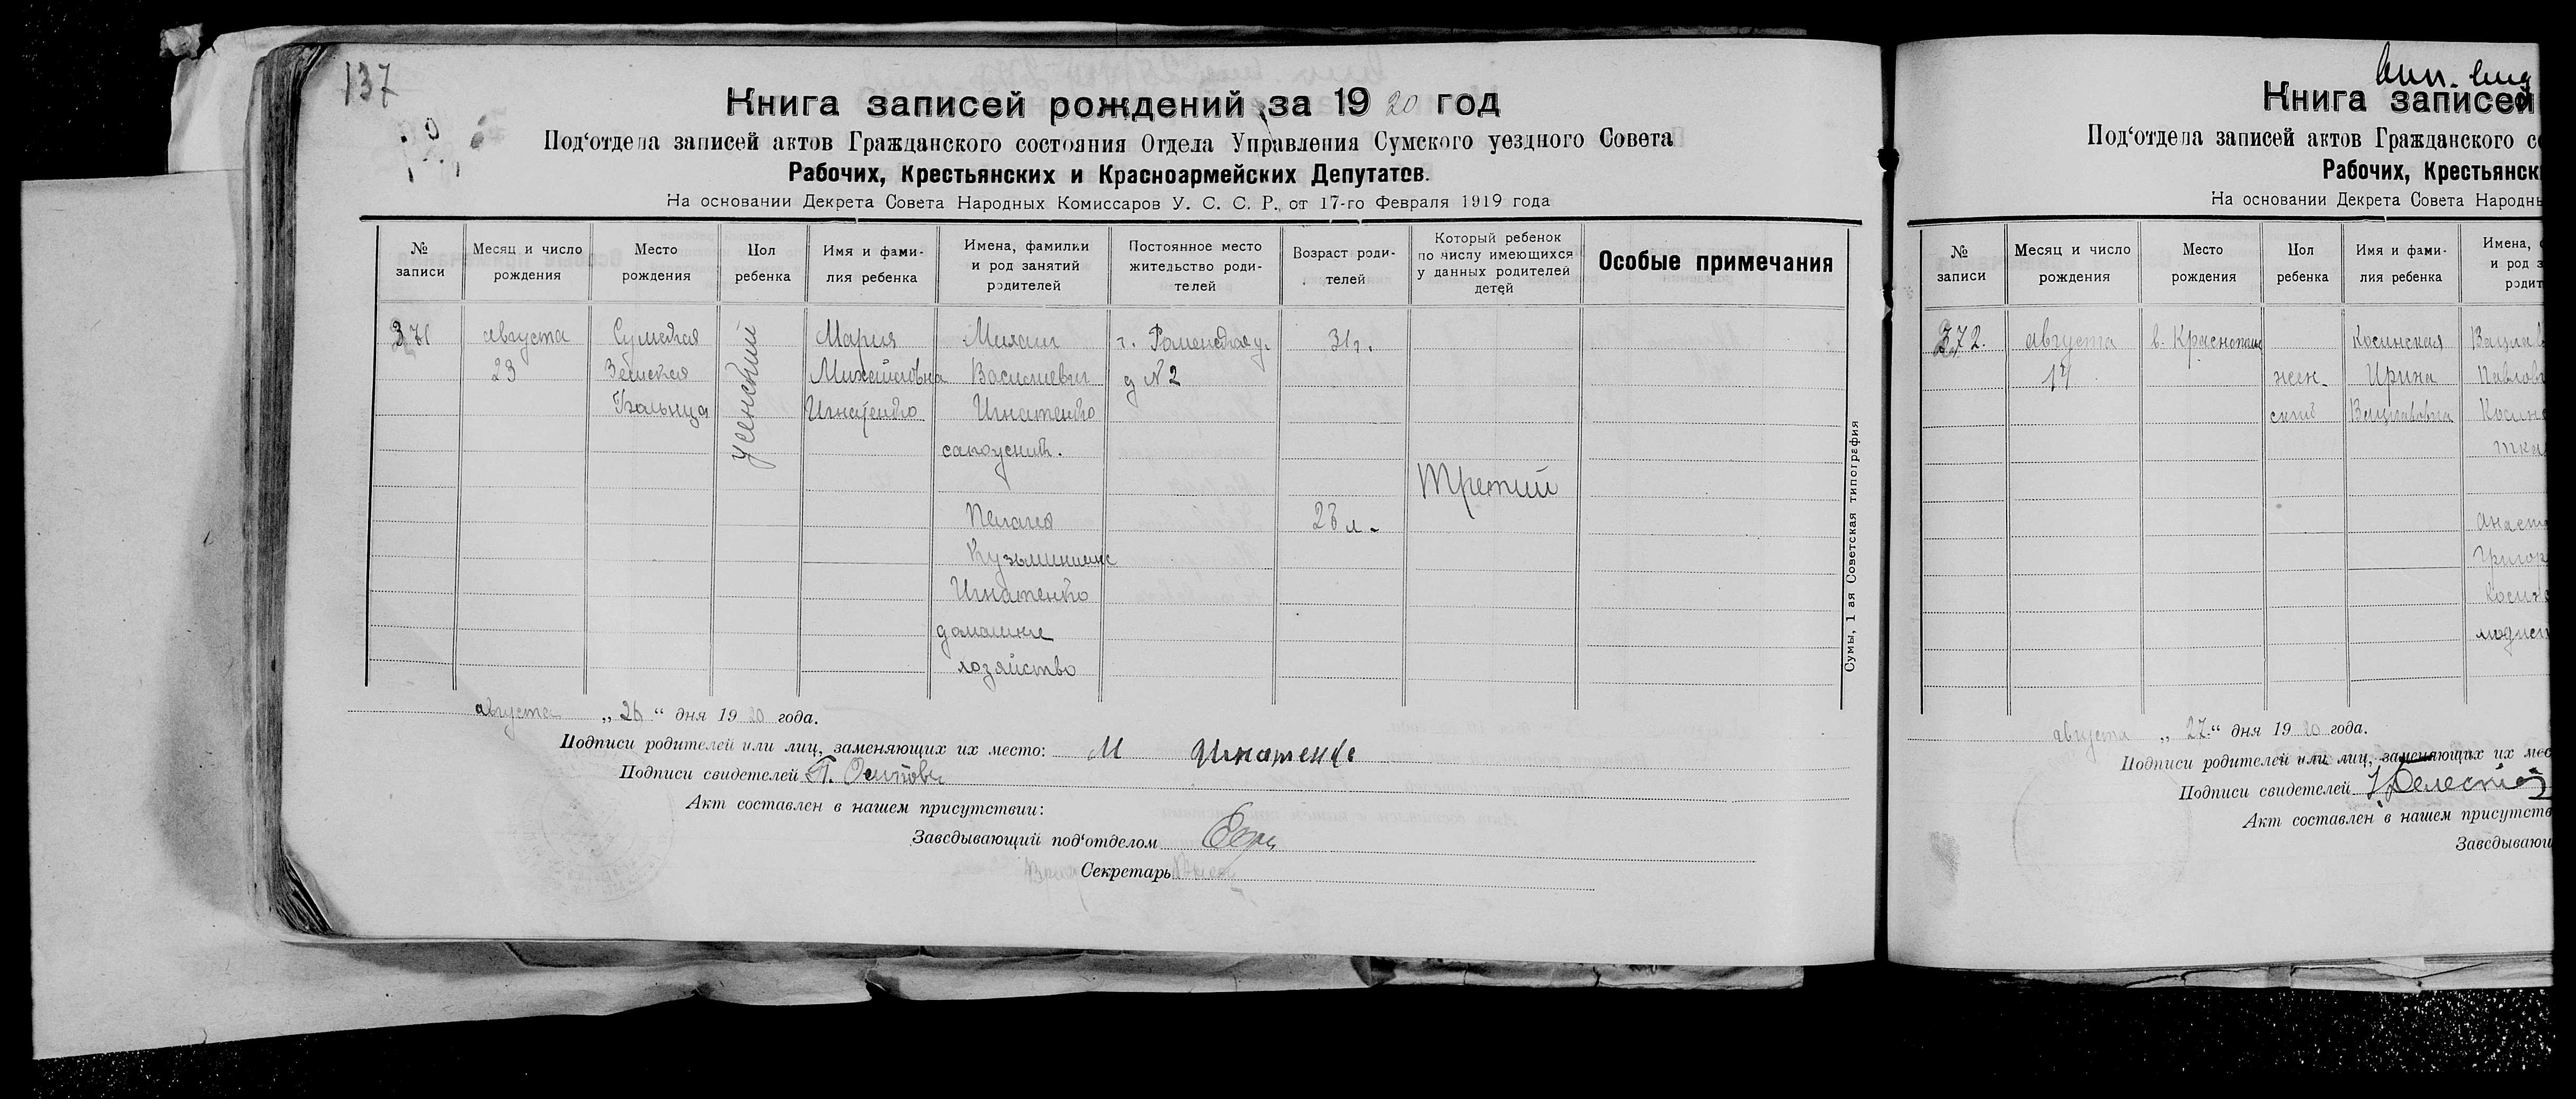 137
Книга записей рождений за 1920 год
Под‘отдела записей актов Гражданского состояния Отдела Управления Сумского уездного Совета
Рабочих, Крестьянских и Красноармейских Депутатов.
На основании Декрета Совета Народных Комиссаров У. С. С. Р., от 17-го Февраля 1919 года
№ записи
Месяц и число рождения
Место рождения
Пол ребенка
Имя и фами-
лия ребенка
Имена, фамилии
и род занятий
родителей
Постоянное место
жительство роди-
телей
Возраст роди-
телей
Который ребенок
по числу имеющихся
у данных родителей
детей
Особые примечания
371
августа
23
Сумская
Земская
Больница
женский
Мария
Михайловна
Игнатенко
Михаил
Васильевич
Игнатенко
сапожник.
Пелагия
Кузьминична
Игнатенко
домашнее
хозяйство
г. Роменская у.
д № 2
31 г.
28 л.
Третий
Сумы, 1 ая Советская типография
августа „26“ дня 1920 года.
Подписи родителей или лиц, заменяющих их место: М Игнатенко
Подписи свидетелей П. Осипова
Акт составлен в нашем присутствии:
Заведывающий под‘отделом
Секретарь
Книга записей
Под‘отдела записей актов Гражданского со
Рабочих, Крестьянск
На основании Декрета Совета Народн
№ записи
Месяц и число рождения
Место рождения
Пол ребенка
Имя и фами-
лия ребенка
Имена,
и род з
родит
372.
августа
14
в. Краснополье
жен-
ский
Косинская
Ирина
Вацлавовна
Вацлав
Павлов
Косинс
тка
Анаст
Григор
Косинс
модист
августа „27“ дня 1920 года.
Подписи родителей или лиц, заменяющих их мес
Подписи свидетелей
Акт составлен в нашем присутств
Заведывающ